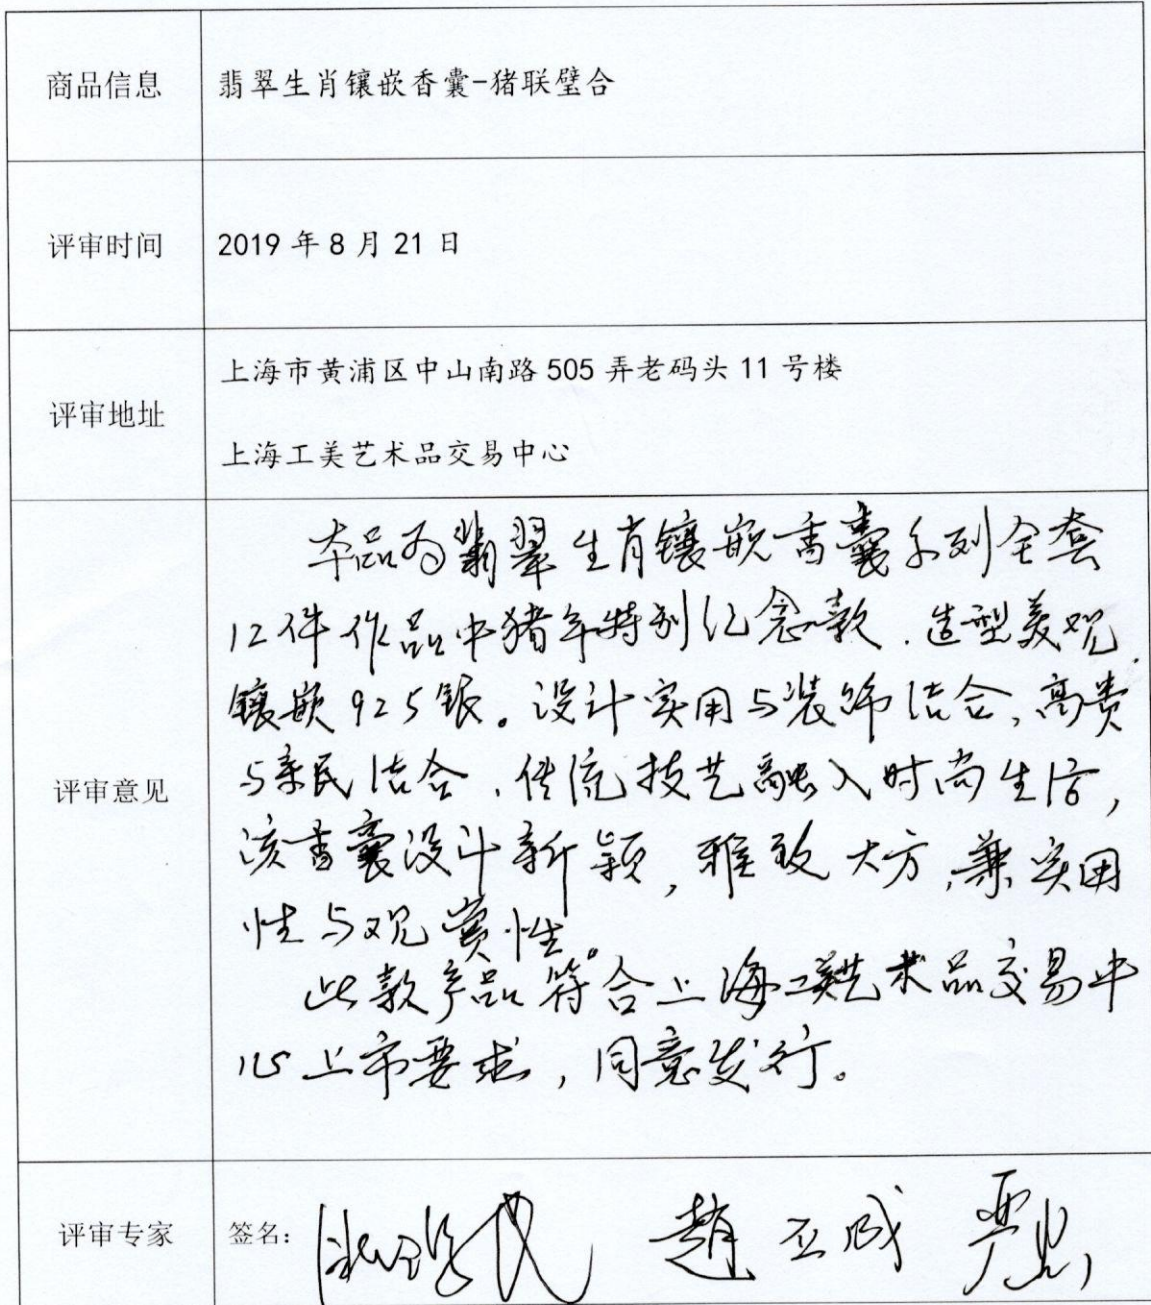 商品信息
翡翠生肖镶嵌香囊-猪联璧合
评审时间
2019 年 8 月 21 日
评审地址
上海市黄浦区中山南路 505 弄老码头 11 号楼
上海工美艺术品交易中心
评审意见
本品为翡翠生肖镶嵌香囊系列全套
12件作品中猪年特别纪念款．造型美观．
镶嵌925银。设计实用与装饰结合，高贵
与亲民结合．传统技艺融入时尚生活，
该香囊设计新颖，雅致大方，兼实用
性与观赏性。
此款产品符合上海工美艺术品交易中
心上市要求，同意发行。
评审专家
签名：
趙丕成